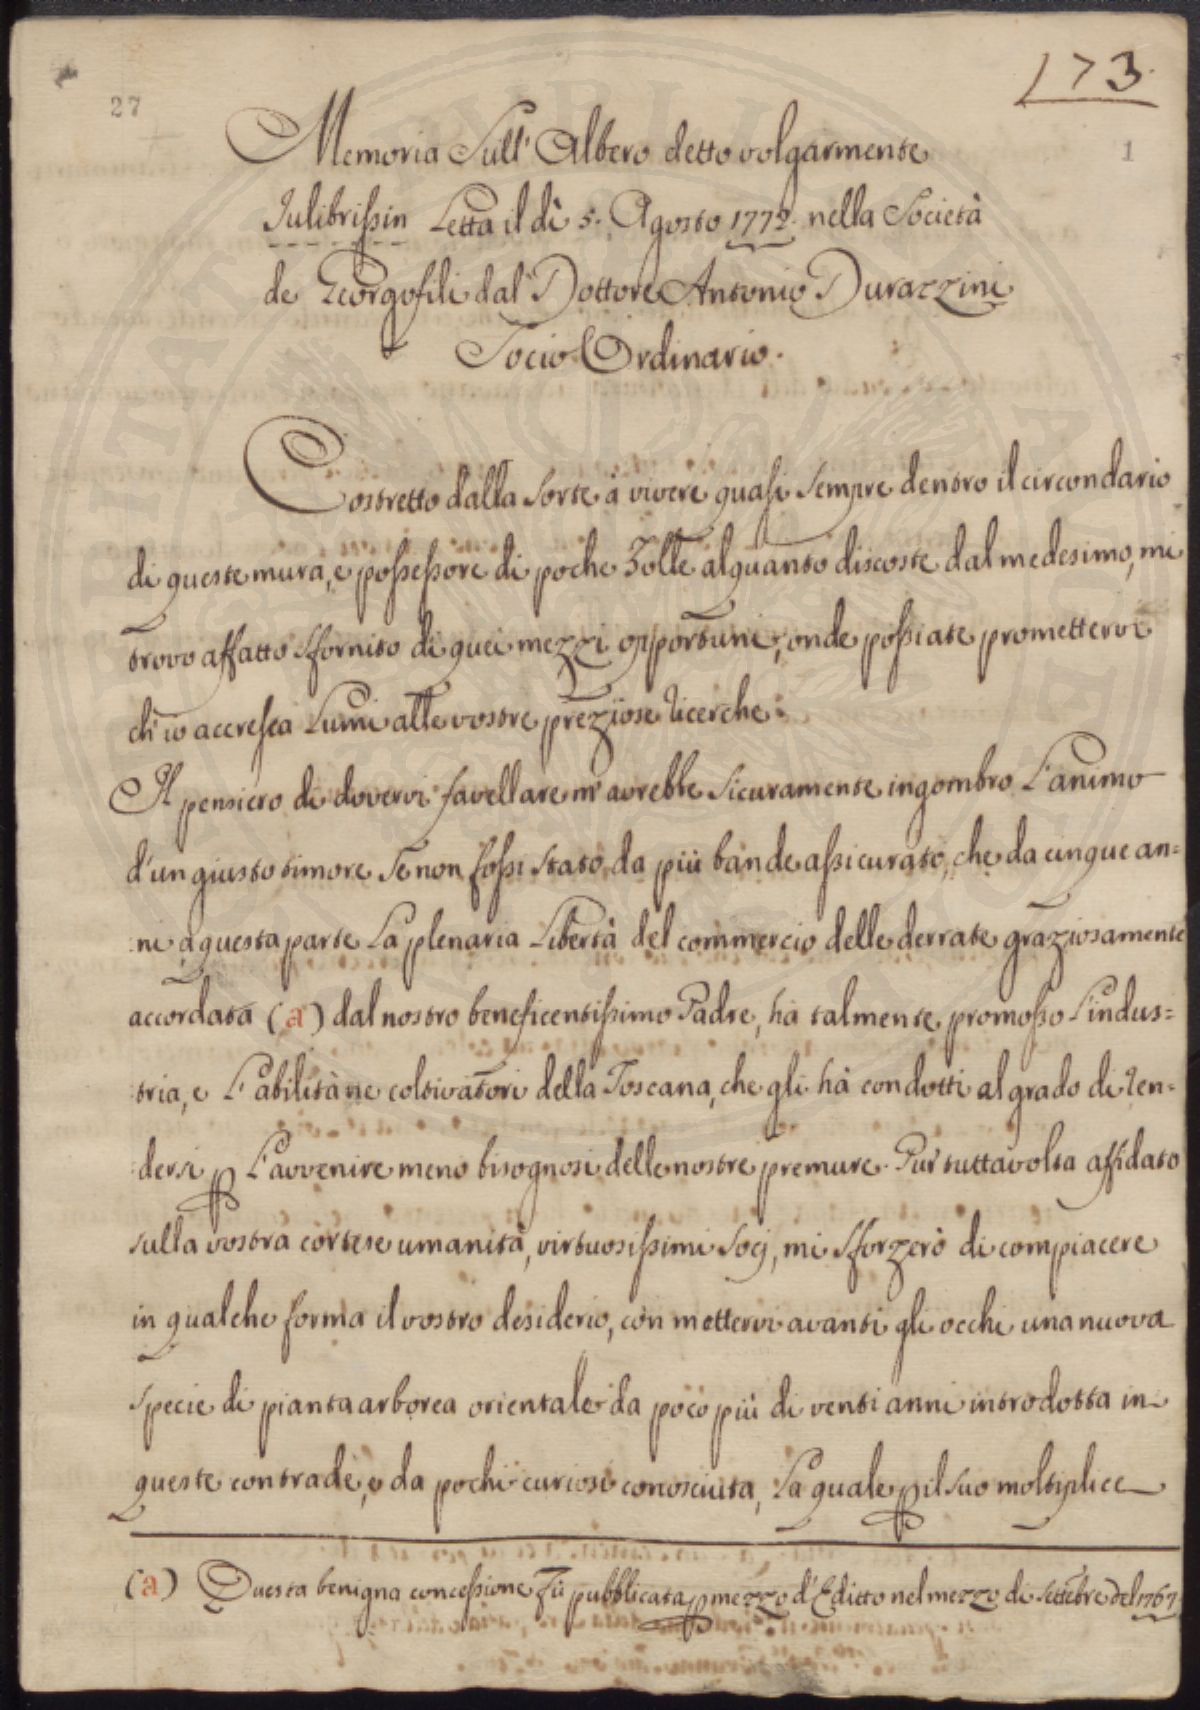 173.
27
1
Memoria Sull' Albero detto volgarmente
Julibrissin Letta il dì 5. Agosto 1772. nella Società
de Georgofili dal Dottore Antonio Durazzini
Socio Ordinario.
Costretto dalla sorte à vivere quasi sempre dentro il circondario
di queste mura, e possessore di poche Zolle alquanto discoste dal medesimo, mi
trovo affatto sfornito di quei mezzi opportuni, onde possiate promettervi
ch' io accresca Lumi alle vostre preziose ricerche.
Il pensiero di dovervi favellare m' avrebbe sicuramente ingombro L'animo
d'un giusto timore se non fossi stato da più bande assicurato, che da cinque an=
ni a questa parte La plenaria Libertà del commercio delle derrate graziosamente
accordata (a) dal nostro beneficentissimo Padre, hà talmente promosso L'indus=
tria, e L'abilità ne coltivatori della Toscana, che gli hà condotti al grado di ren=
dersi p L'avvenire meno bisognosi delle nostre premure. Pur tuttavolta affidato
sulla vostra cortese umanità, virtuosissimi Socj, mi sforzerò di compiacere
in qualche forma il vostro desiderio, con mettervi avanti gli occhi una nuova
specie di pianta arborea orientale da poco più di venti anni introdotta in
queste contrade, e da pochi curiosi conosciuta, La quale p il suo moltiplice
(a) Questa benigna concessione Fù pubblicata p mezzo d'Editto nel mezzo di Settebre del 1767.